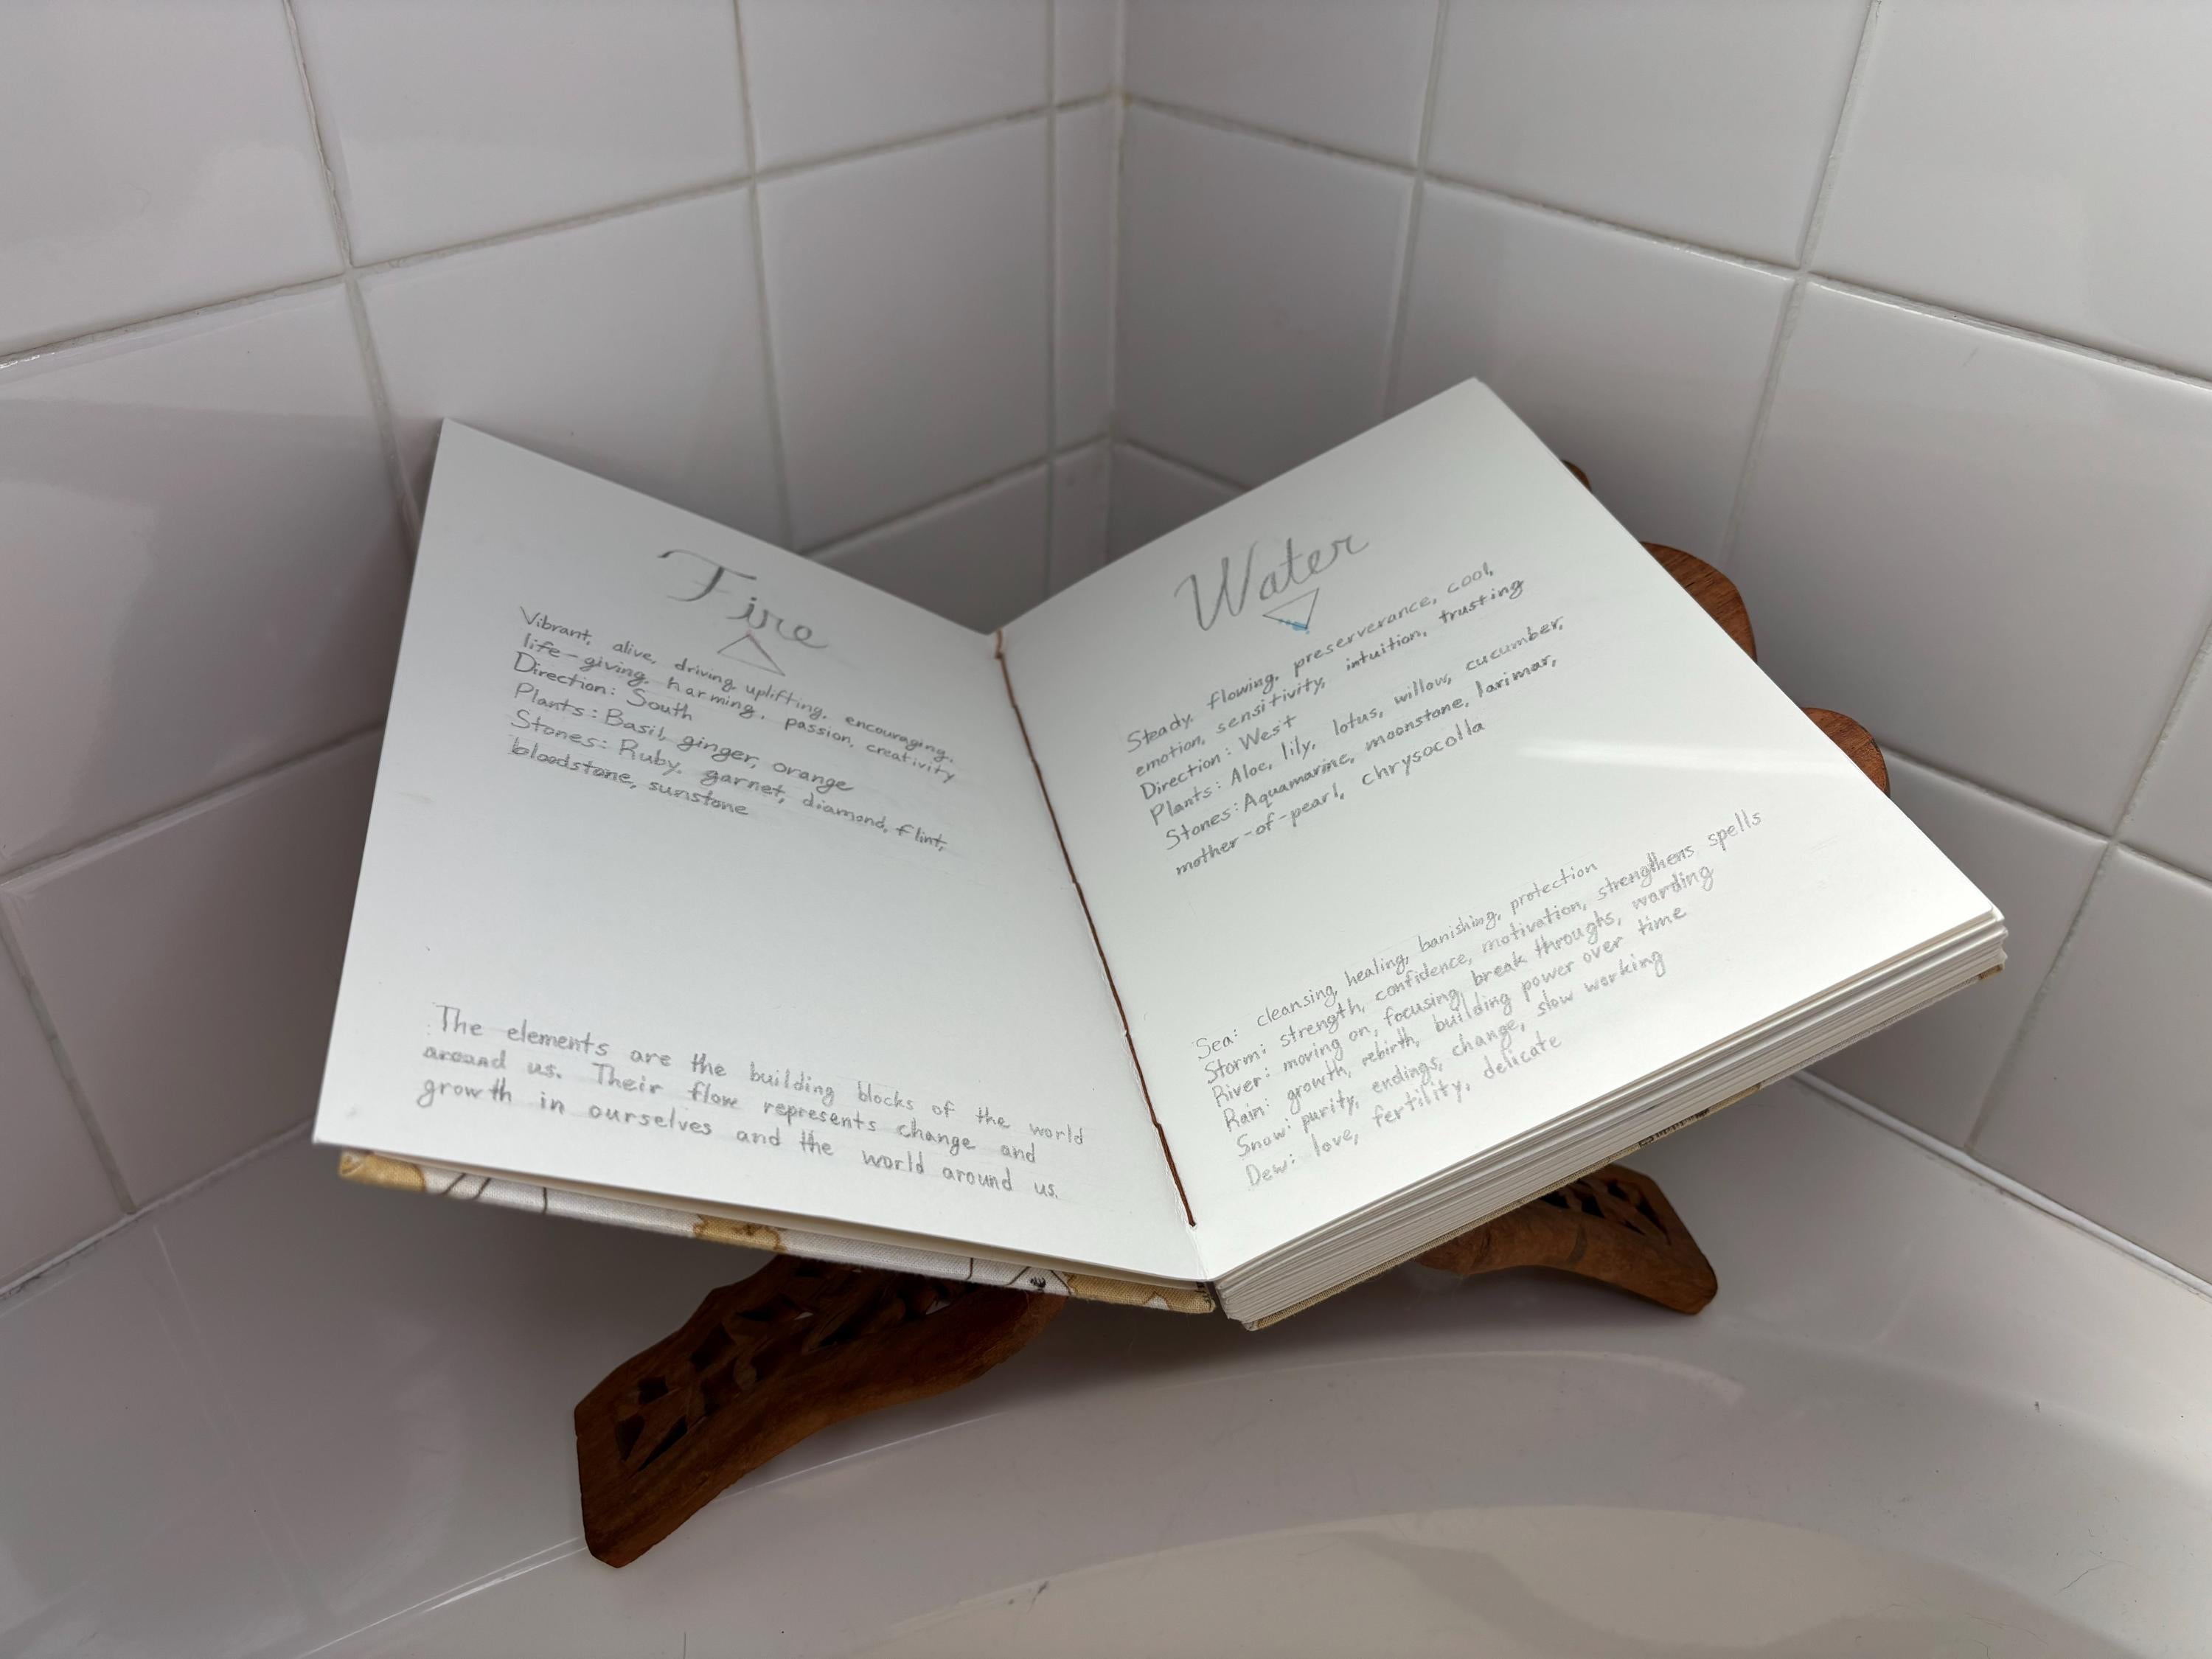 Fire
Vibrant, alive, driving, uplifting, encouraging,
life-giving, harming, passion, creativity
Direction: South
Plants: Basil, ginger, orange
Stones: Ruby, garnet, diamond, flint,
bloodstone, sunstone
The elements are the building blocks of the world
around us. Their flow represents change and
growth in ourselves and the world around us.
Water
Steady, flowing, preserverance, cool,
emotion, sensitivity, intuition, trusting
Direction: West
Plants: Aloe, lily, lotus, willow, cucumber,
Stones: Aquamarine, moonstone, larimar,
mother-of-pearl, chrysocolla
Sea: cleansing, healing, banishing, protection
Storm: strength, confidence, motivation, strengthens spells
River: moving on, focusing, break throughs, warding
Rain: growth, rebirth, building power over time
Snow: purity, endings, change, slow working
Dew: love, fertility, delicate